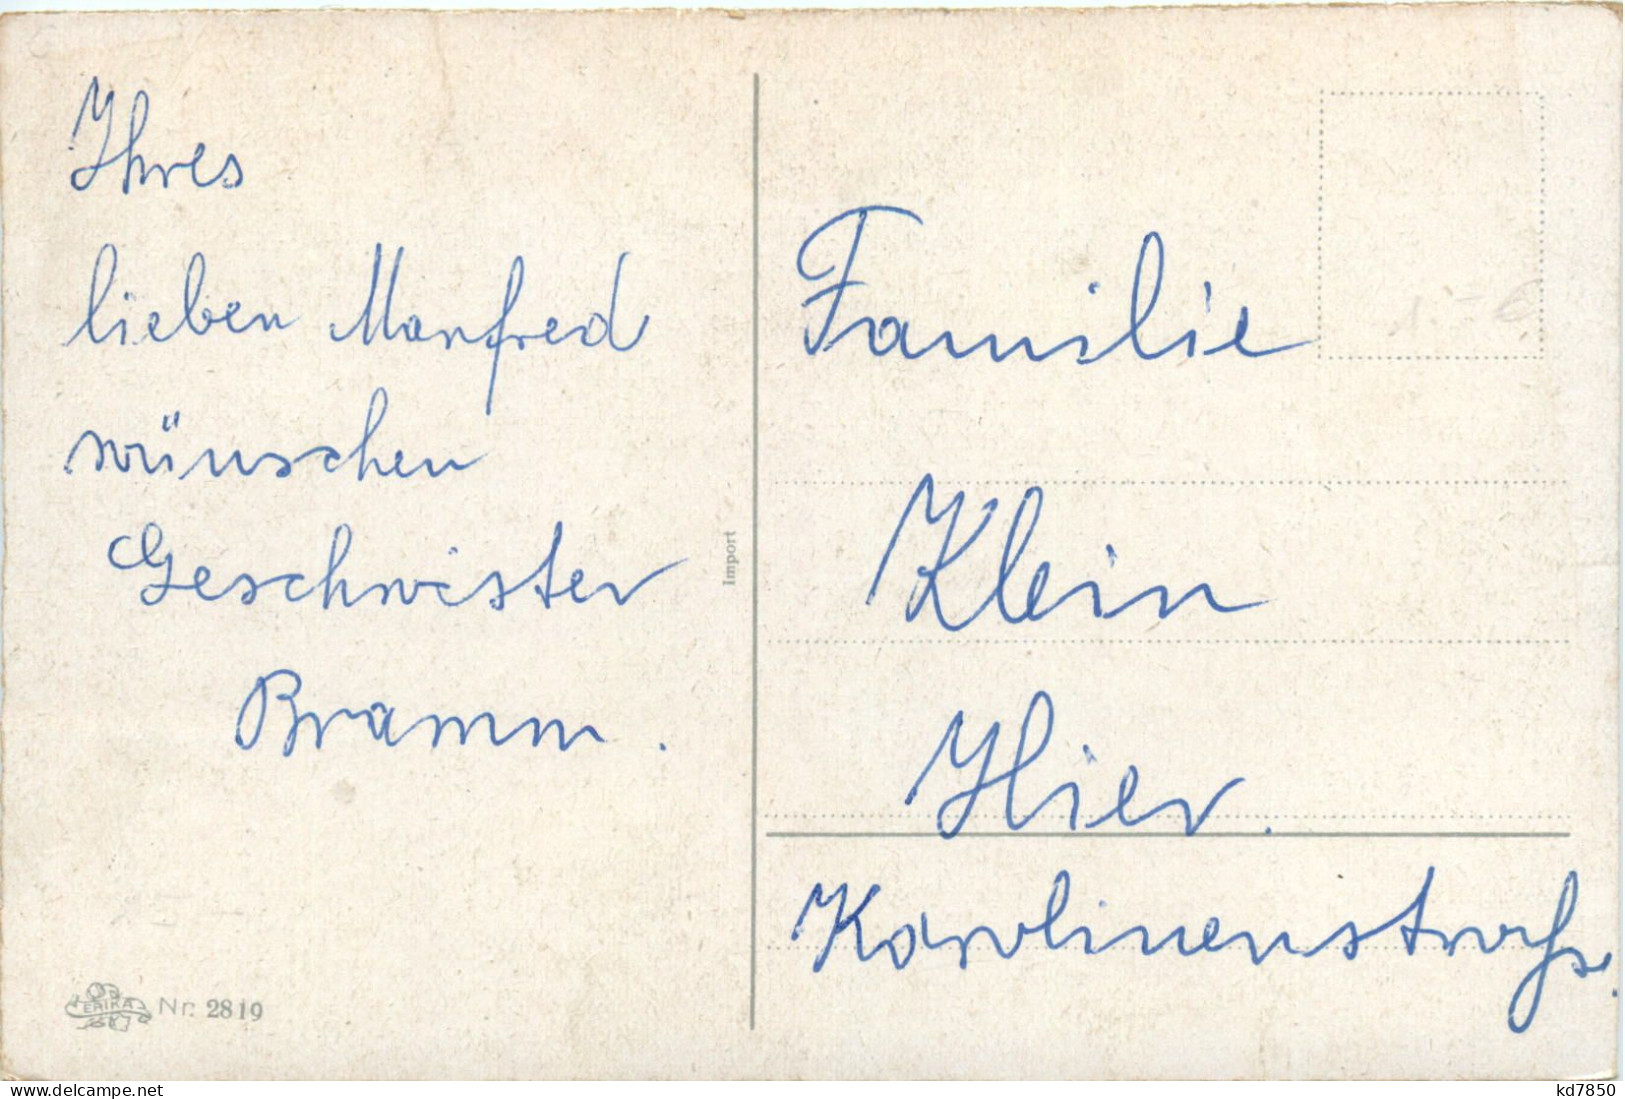 Ihres
lieben Manfred
wünschen
Geschwister
Bramm.
Import
ERIKA Nr. 2819
Familie
Klein
Hier.
Karolinenstraße.
www.delcampe.net
kd7850